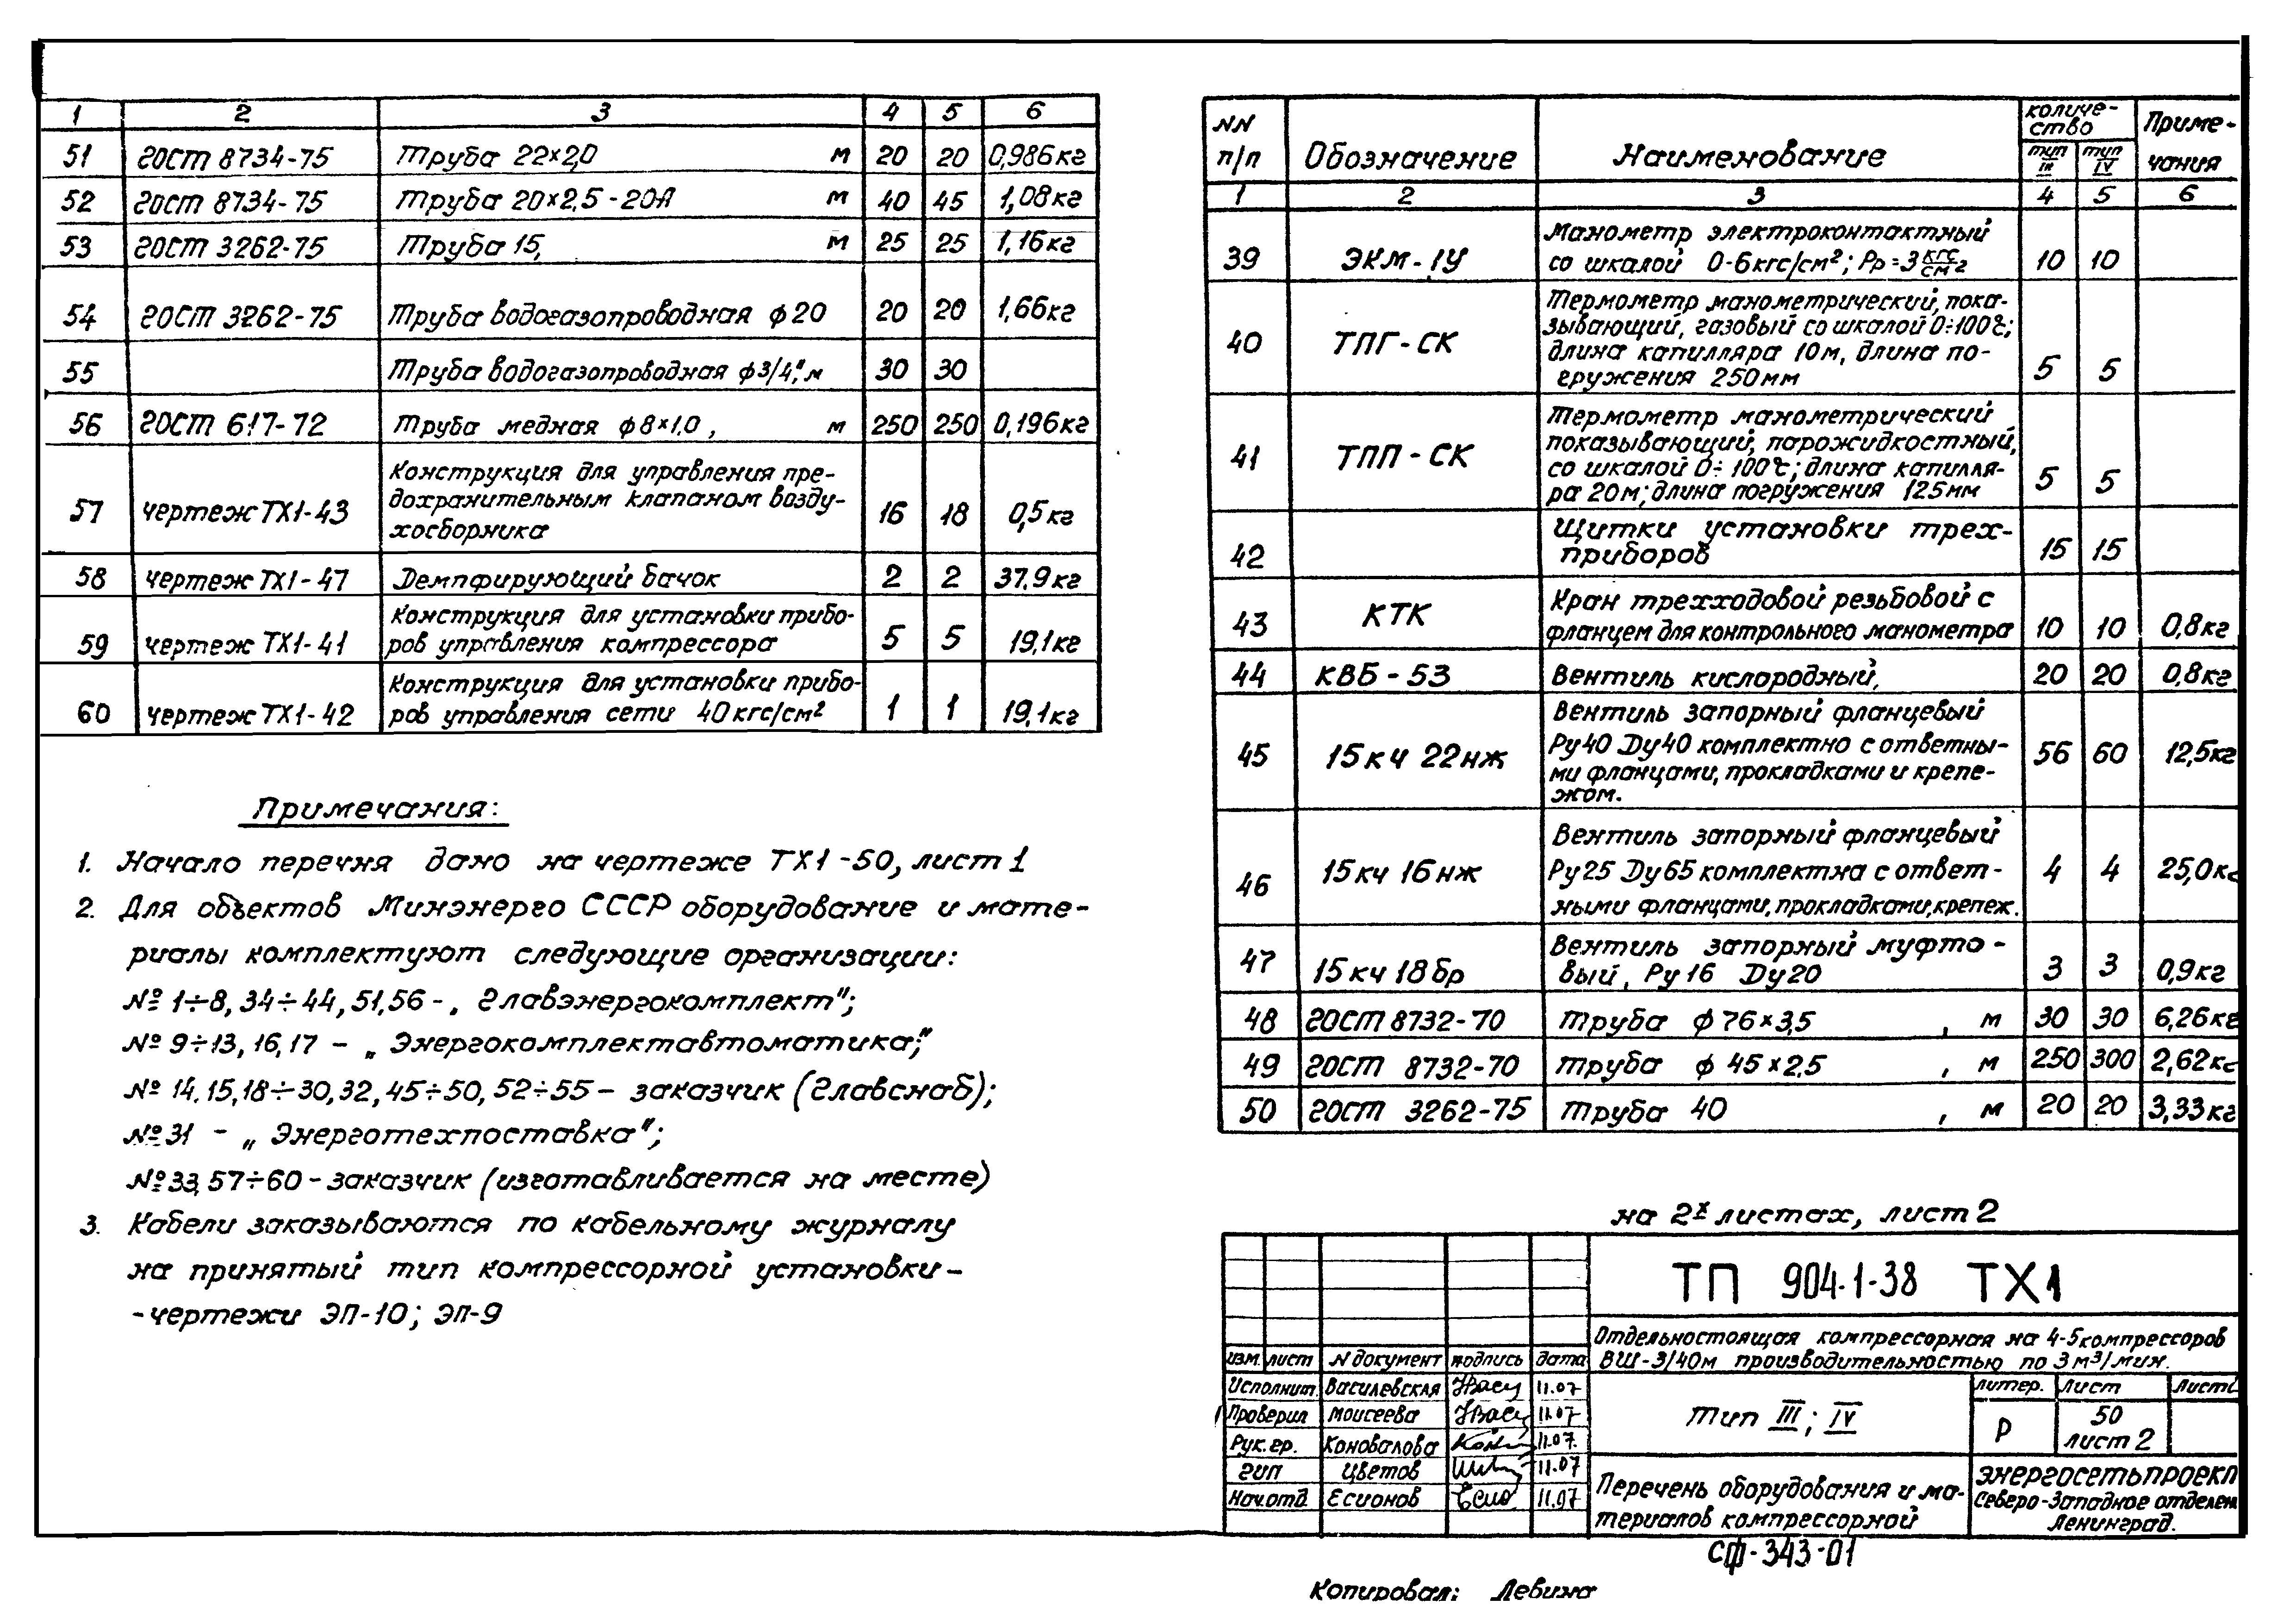 1 2 3 4 5 6
51 ГОСТ 8734-75 Труба 22×2,0 м 20 20 0,986кг
52 ГОСТ 8734-75 Труба 20×2,5-20А м 40 45 1,08кг
53 ГОСТ 3262-75 Труба 15, м 25 25 1,16кг
54 ГОСТ 3262-75 Труба водогазопроводная ϕ20 20 20 1,66кг
55 Труба водогазопроводная ϕ3/4," м 30 30
56 ГОСТ 617-72 Труба медная ϕ8×1.0, м 250 250 0,196кг
Конструкция для управления пре-
57 чертеж ТХ1-43 дохранительным клапаном возду- 16 18 0,5кг
хосборника
58 чертеж ТХ1-47 Демпфирующий бачок 2 2 37.9кг
Конструкция для установки прибо-
59 чертеж ТХ1-41 ров управления компрессора 5 5 19,1кг
Конструкция для установки прибо-
60 чертеж ТХ1-42 ров управления сети 40кгс/см² 1 1 19,1кг
Примечания:
1. Начало перечня дано на чертеже ТХ1-50, лист 1
2. Для объектов Минэнерго СССР оборудование и мате-
риалы комплектуют следующие организации:
№ 1÷8, 34÷44, 51,56 - „Главэнергокомплект";
№ 9÷13, 16, 17 - „Энергокомплектавтоматика";
№ 14, 15, 18÷30, 32, 45÷50, 52÷55 - заказчик (Главснаб);
№31 - „Энерготехпоставка";
№33, 57÷60 - заказчик (изготавливается на месте)
3. Кабели заказываются по кабельному журналу
на принятый тип компрессорной установки -
- чертежи ЭП-10; ЭП-9
NN п/п Обозначение Наименование количе- Приме-
ство чания
тип III тип IV
1 2 3 4 5 6
Манометр электроконтактный
39 ЭКМ-1У со шкалой 0-6кгс/см²; Рр=3 кгс/см² 10 10
Термометр манометрический, пока-
зывающий, газовый со шкалой 0÷100°С;
40 ТПГ-СК длина капилляра 10м, длина по-
гружения 250мм 5 5
Термометр манометрический
показывающий, парожидкостный,
41 ТПП-СК со шкалой 0÷100°С; длина капилля-
ра 20м; длина погружения 125мм 5 5
Щитки установки трех-
42 приборов 15 15
КТК Кран трехходовой резьбовой с
43 фланцем для контрольного манометра 10 10 0,8кг
44 КВБ-53 Вентиль кислородный, 20 20 0,8кг
Вентиль запорный фланцевый
45 15кч 22нж Ру40 Ду40 комплектно с ответны- 56 60 12,5кг
ми фланцами, прокладками и крепе-
жом.
Вентиль запорный фланцевый
46 15кч 16нж Ру25 Ду65 комплектна с ответ- 4 4 25,0кг
ными фланцами, прокладками, крепеж.
Вентиль запорный муфто-
47 15кч 18бр вый, Ру16 Ду20 3 3 0,9кг
48 ГОСТ 8732-70 Труба ϕ76×3,5 , м 30 30 6,26кг
49 ГОСТ 8732-70 Труба ϕ45×2.5 , м 250 300 2,62кг
50 ГОСТ 3262-75 Труба 40 , м 20 20 3,33кг
на 2х листах, лист 2
ТП 904-1-38 ТХ1
Отдельностоящая компрессорная на 4-5 компрессоров
ВШ-3/40м производительностью по 3м³/мин.
изм. лист N документ подпись дата
Исполнит. Василевская 11.07
Проверил Моисеева 11.07
Рук. гр. Коновалова 11.07.
ГИП Цветов 11.07
Нач. отд Есионов 11.07
Тип III; IV
литер. Лист Лист
Р 50
лист 2
Перечень оборудования и ма-
териалов компрессорной
ЭНЕРГОСЕТЬПРОЕКТ
Северо-Западное отделен
Ленинград.
СФ-343-01
Копировал: Левина